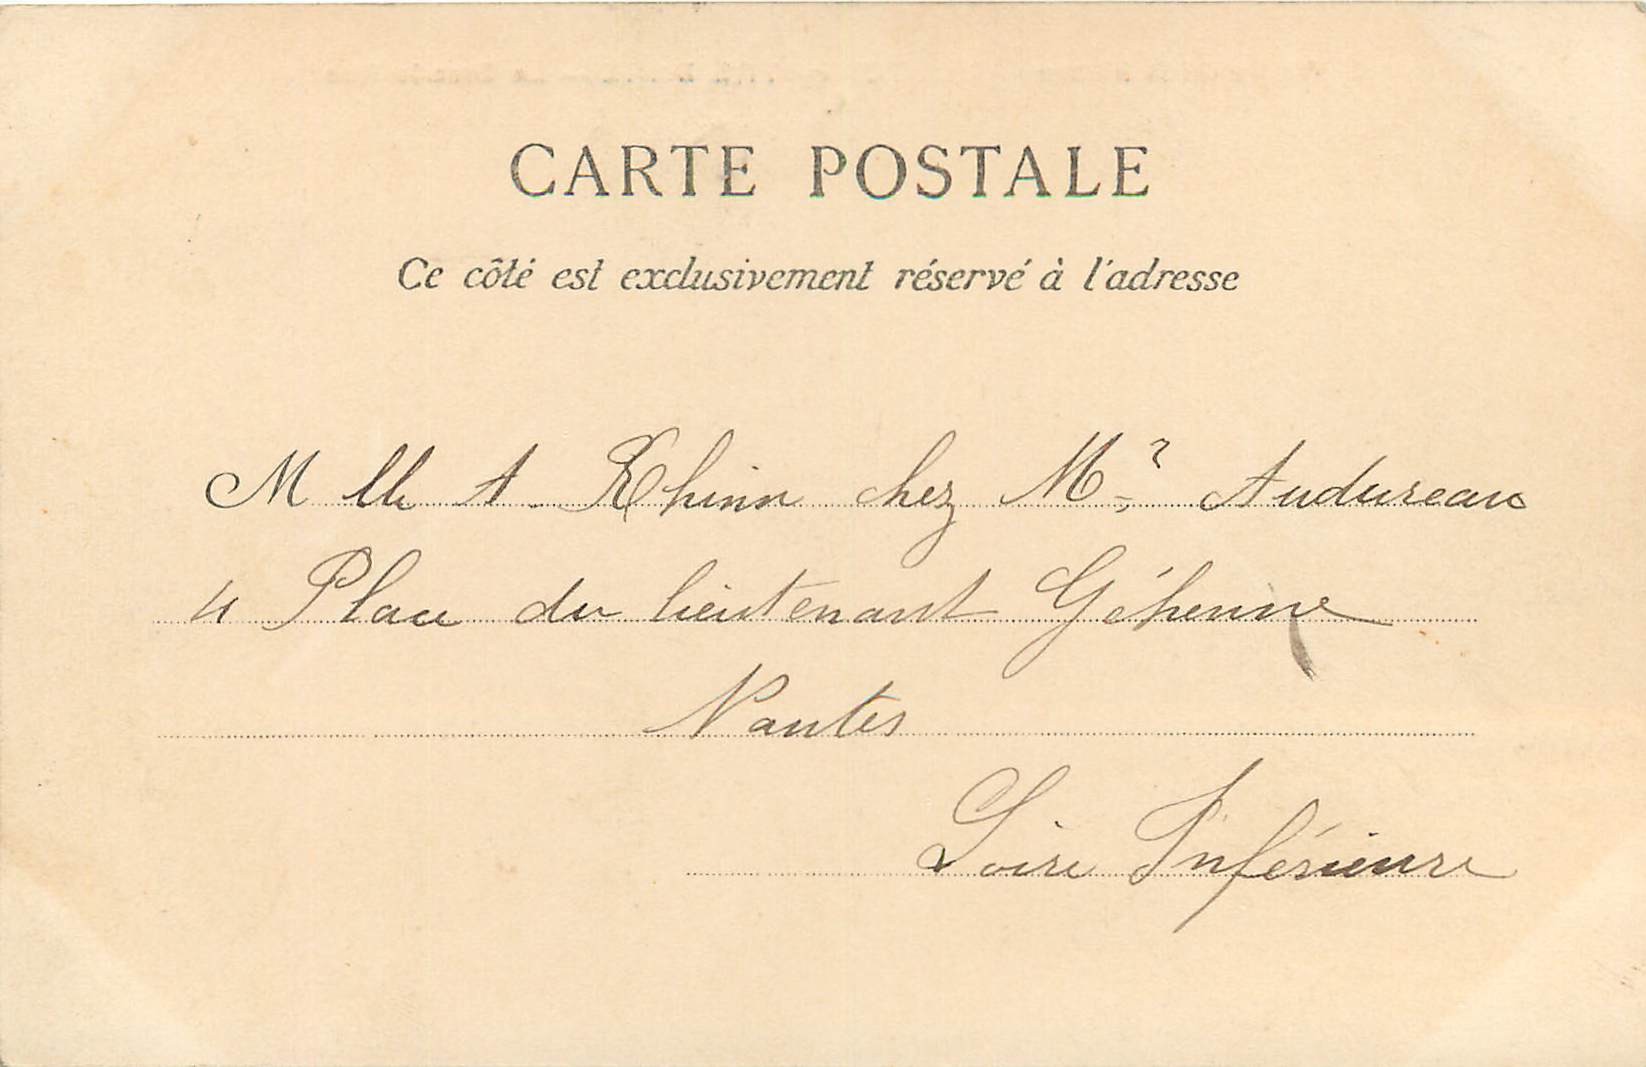 CARTE POSTALE
Ce côté est exclusivement réservé à l'adresse
Mlle A. Rhinn chez Mr Audureau
4 Place du lieutenant Géhenne
Nantes
Loire Inférieure